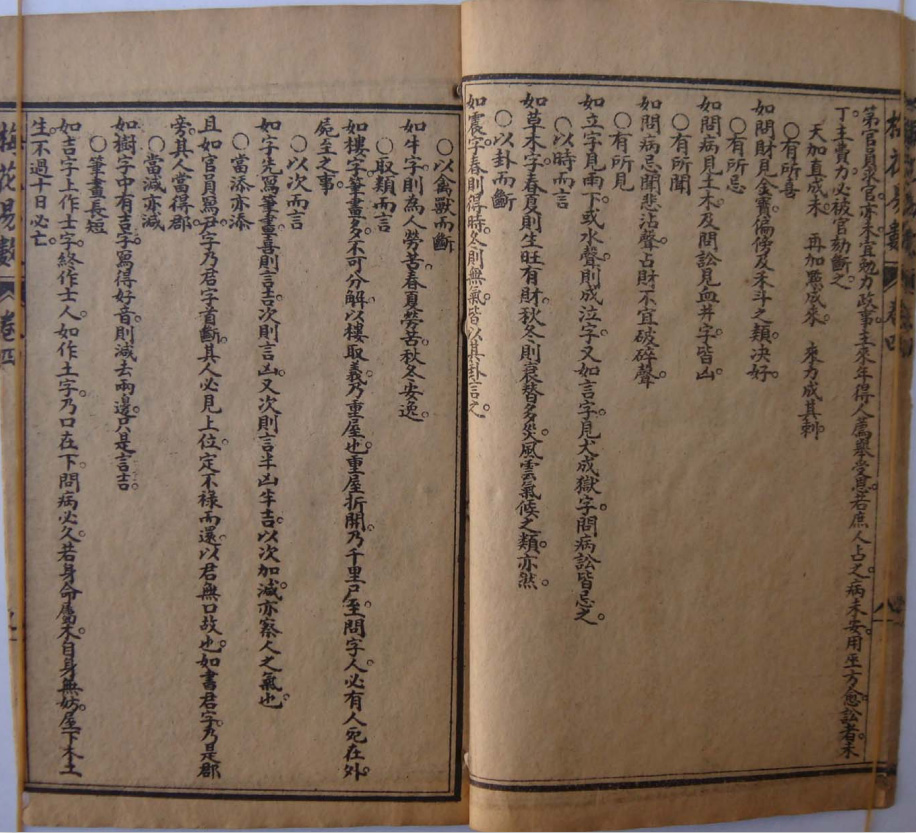 第官員求官亦未宜勉力政事主來年得人薦舉受恩若庶人占之病未安用巫方愈訟者未
丁主費力必被官劾斷之
天加直成未　再加點成來　來力成其剌
〇有所喜
如問財見金寶偏傍及禾斗之類決好
〇有所忌
如問病見土木及問訟見血井字皆凶
〇有所聞
如問病忌聞悲沾聲占財不宜破碎聲
〇有所見
如立字見雨下或水聲則成泣字又如言字見犬成獄字問病訟皆忌之
〇以時而言
如草木字春夏則生旺有財秋冬則衰替多災風雲氣候之類亦然
〇以卦而斷
如震字春則得時冬則無氣皆以其卦言之
〇以禽獸而斷
如牛字則為人勞苦春夏勞苦秋冬安逸
〇取類而言
如樓字筆畫多不可分解以樓取義乃重屋也重屋折開乃千里尸至問字人必有人死在外
屍至之事
〇以次而言
如字先寫筆畫喜則言吉次則言凶又次則言半凶半吉以次加減亦察人之氣也
〇當添亦添
且如官員寫尹字乃君字首斷其人必見上位定不祿而還以君無口故也如書君字乃是郡
旁其人當得郡
〇當減亦減
如樹字中有吉字寫得好音則減去兩邊只是言吉
〇筆畫長短
如吉字上作士字終作士人如作土字乃口在下問病必久若身命屬木自身無妨屋下木土
生不過十日必亡
梅花易數　卷四